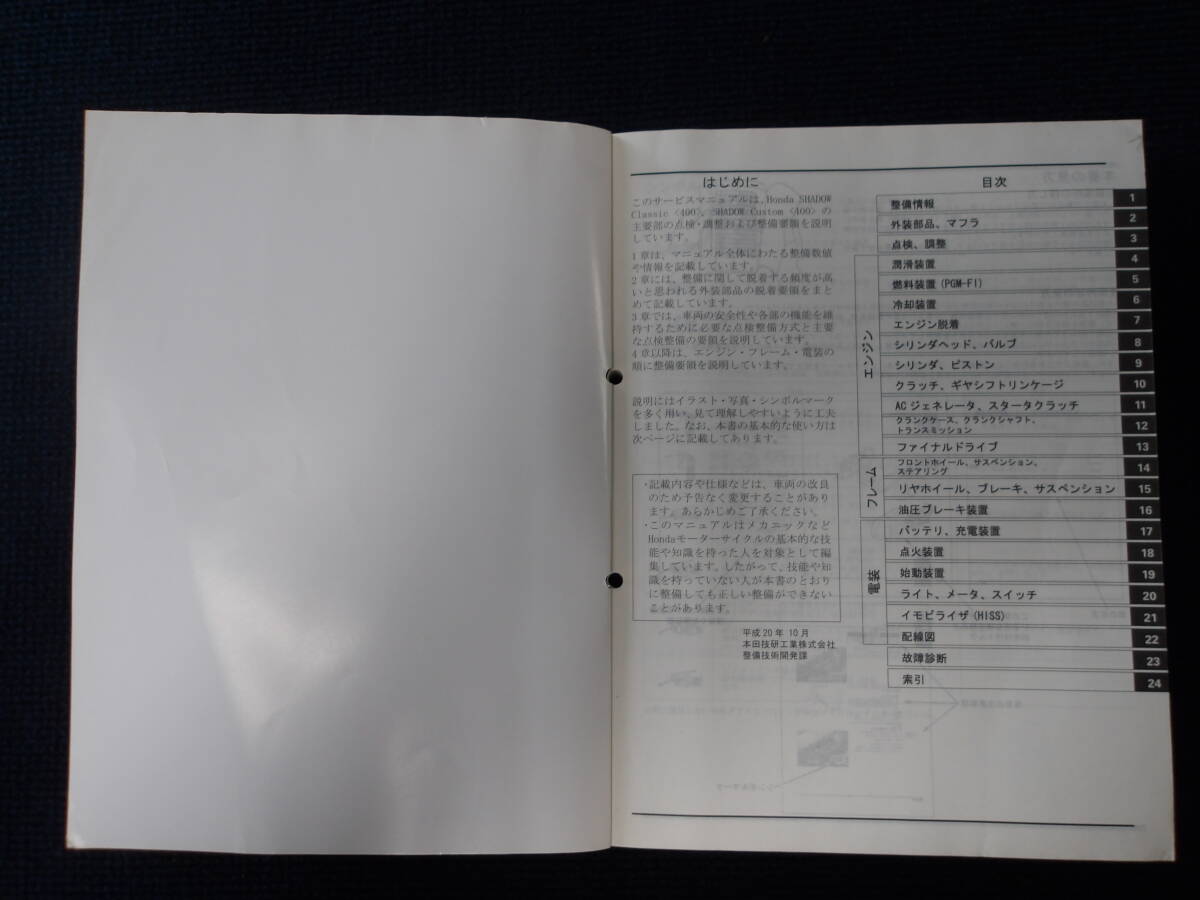 はじめに
このサービスマニュアルは、Honda SHADOW
Classic <400>、SHADOW Custom <400> の
主要部の点検・調整および整備要領を説明
しています。
1章は、マニュアル全体にわたる整備数値
や情報を記載しています。
2章には、整備に関して脱着する頻度が高
いと思われる外装部品の脱着要領をまと
めて記載しています。
3章では、車両の安全性や各部の機能を維
持するために必要な点検整備方式と主要
な点検整備の要領を説明しています。
4章以降は、エンジン・フレーム・電装の
順に整備要領を説明しています。
説明にはイラスト・写真・シンボルマーク
を多く用い、見て理解しやすいように工夫
しました。なお、本書の基本的な使い方は
次ページに記載してあります。
・記載内容や仕様などは、車両の改良
のため予告なく変更することがあり
ます。あらかじめご了承ください。
・このマニュアルはメカニックなど
Hondaモーターサイクルの基本的な技
能や知識を持った人を対象として編
集しています。したがって、技能や知
識を持っていない人が本書のとおり
に整備しても正しい整備ができない
ことがあります。
平成20年10月
本田技研工業株式会社
整備技術開発課
目次
整備情報 1
外装部品、マフラ 2
点検、調整 3
エンジン
潤滑装置 4
燃料装置(PGM-FI) 5
冷却装置 6
エンジン脱着 7
シリンダヘッド、バルブ 8
シリンダ、ピストン 9
クラッチ、ギヤシフトリンケージ 10
ACジェネレータ、スタータクラッチ 11
クランクケース、クランクシャフト、
トランスミッション 12
ファイナルドライブ 13
フレーム
フロントホイール、サスペンション、
ステアリング 14
リヤホイール、ブレーキ、サスペンション 15
油圧ブレーキ装置 16
電装
バッテリ、充電装置 17
点火装置 18
始動装置 19
ライト、メータ、スイッチ 20
イモビライザ(HISS) 21
配線図 22
故障診断 23
索引 24